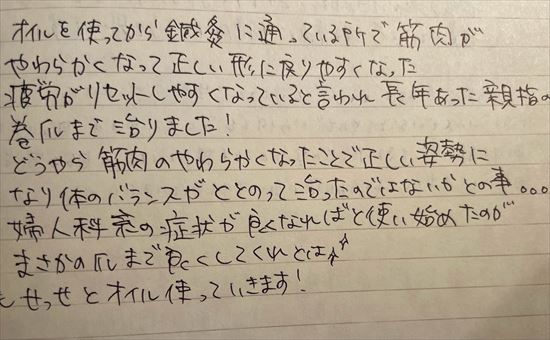 オイルを使ってから鍼灸に通っている所で筋肉が
やわらかくなって正しい形に戻りやすくなった
疲労がリセットしやすくなっていると言われ長年あった親指の
巻爪まで治りました!
どうやら筋肉のやわらかくなったことで正しい姿勢に
なり体のバランスがととのって治ったのではないかとの事...
婦人科系の症状が良くなればと使い始めたのが
まさかの爪まで良くしてくれとは
せっせとオイル使っていきます!